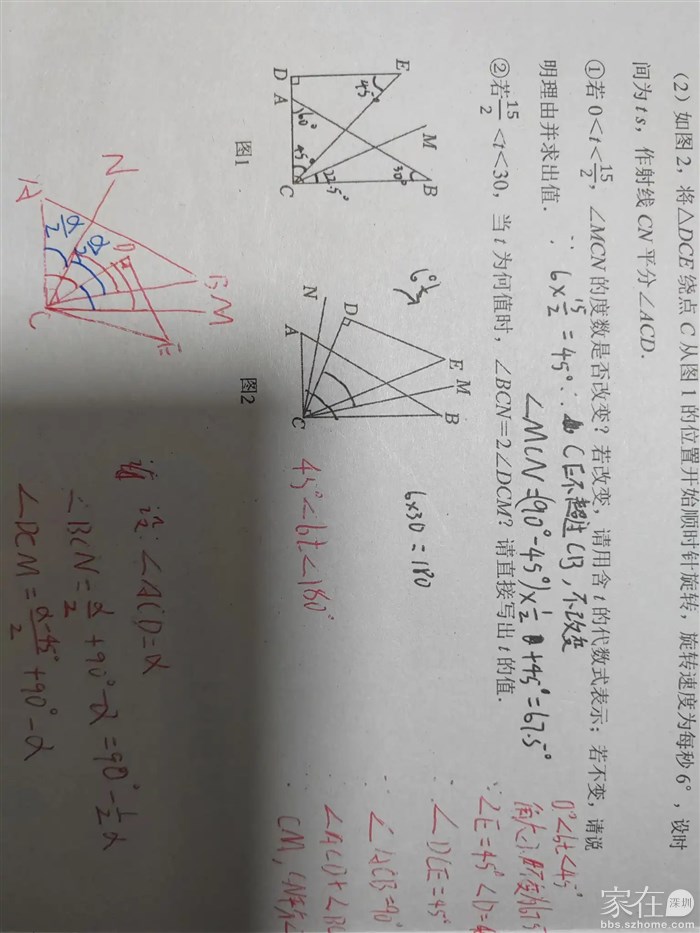 (2) 如图 2，将△DCE 绕点 C 从图 1 的位置开始顺时针旋转，旋转速度为每秒 6°，设时
间为 t s，作射线 CN 平分∠ACD．
①若 0<t<15/2，∠MCN 的度数是否改变？若改变，请用含 t 的代数式表示；若不变，请说
明理由并求出值．
∵ 6×15/2=45° ∴ CE不超过CB，不改变
∠MCN=(90°-45°)×1/2+45°=67.5°
②若15/2<t<30，当 t 为何值时，∠BCN=2∠DCM？请直接写出 t 的值．
E
45°
D
A
60°
45°
C
M
22.5°
30°
B
图1
6°/s
N
D
A
E
M
B
C
图2
6×30=180
45°<6t<180°
N
A
α/2
α/2
D
B
M
E
C
设：∠ACD=α
∴∠BCN=α/2+90°-α=90°-1/2α
∠DCM=α-45°/2+90°-α
0°<6t<45°
∠E=45°
∠DCE=45°
∠ACB=90°
∠ACD+∠B
CM，CN
家在 深圳
bbs.szhome.com